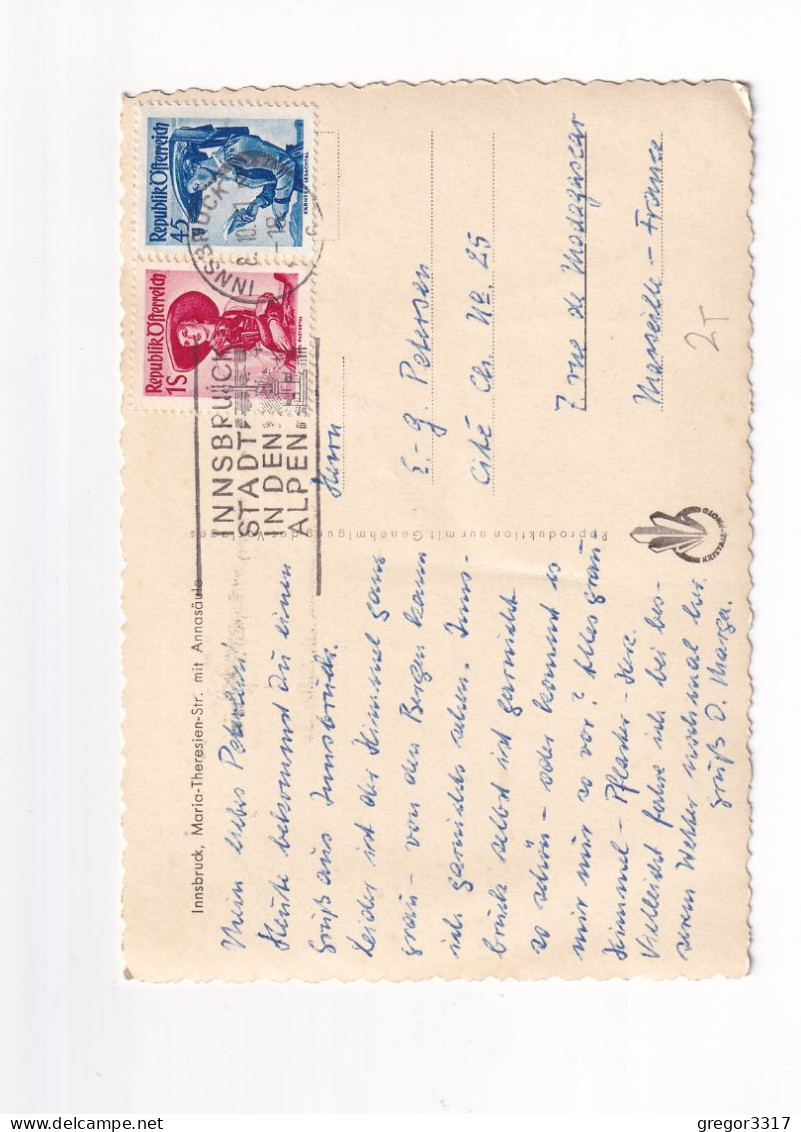 Innsbruck, Maria-Theresien-Str. mit Annasäule
Mein liebes Peterlein!
Heute bekommst Du einen
Gruß aus Innsbruck.
Leider ist der Himmel ganz
grau - von den Bergen kann
ich garnichts sehen. Inns-
bruck selbst ist garnicht
so schön - oder kommt es
mir nur so vor? Alles grau -
Himmel - Pflaster -
Vielleicht fahre ich bei bes-
serem Wetter nochmal her.
Gruß D. Marga.
Reproduktion nur mit Genehmigung des
KRISTALL
Republik Österreich
45
KÄRNTEN, LESACHTAL
Republik Österreich
1S
PUSTERTAL
INNSBRUCK
8.10.51
-18
INNSBRUCK
STADT
IN DEN
ALPEN
Herrn
E.-G. Petersen
Cité Ch. No. 25
7 rue de Madagascar
Marseille - France
2T
gregor3317